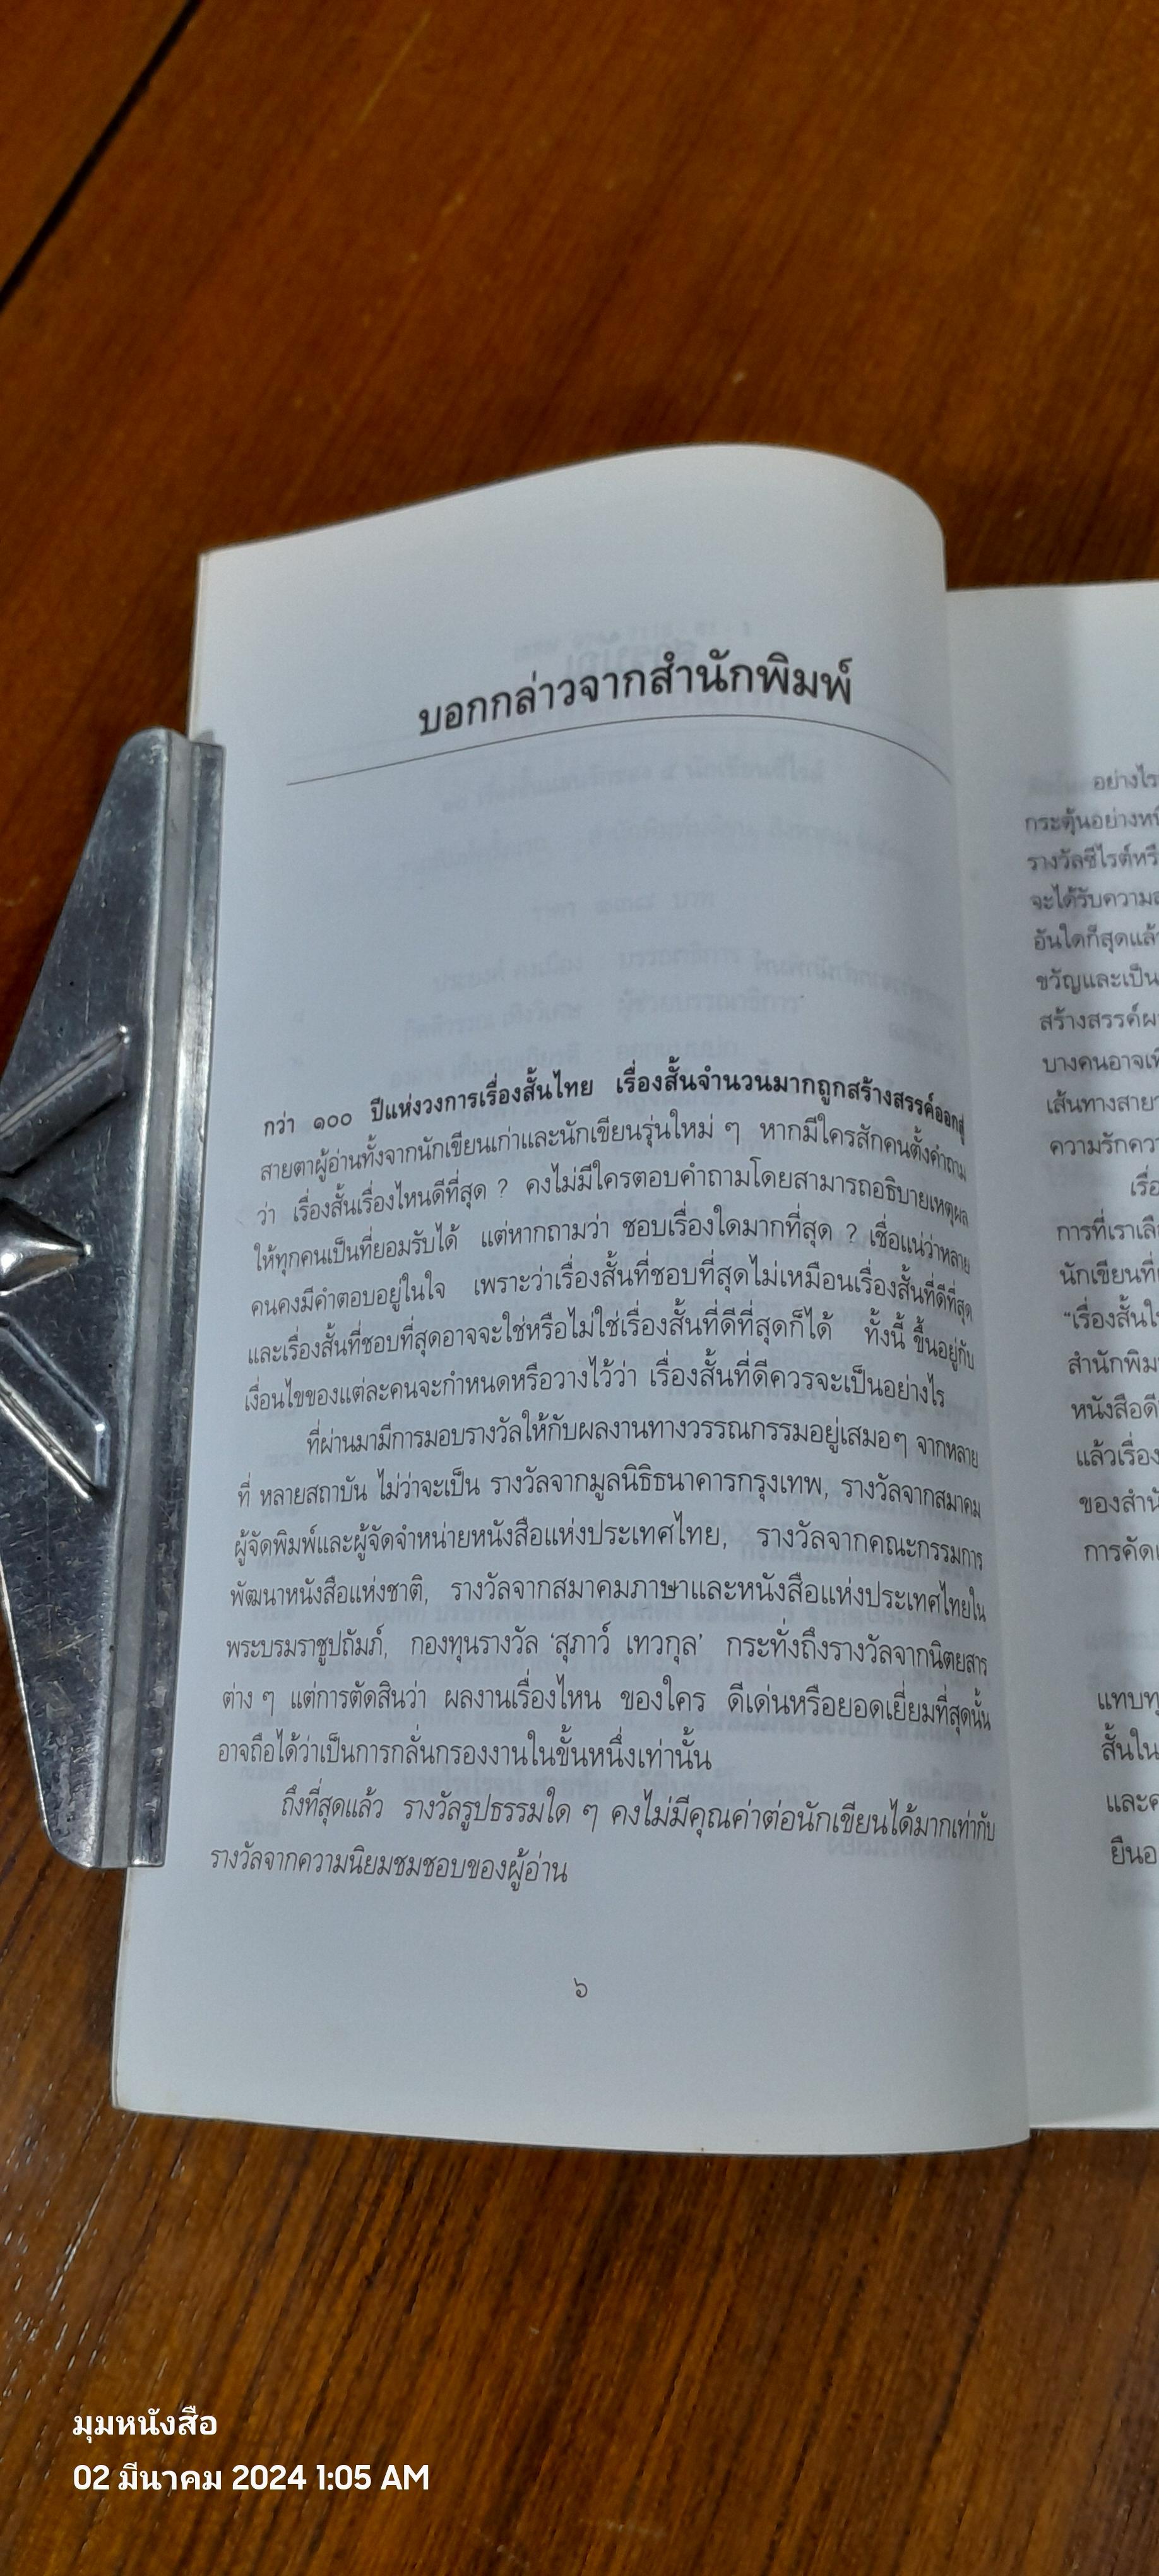 บอกกล่าวจากสำนักพิมพ์
กว่า ๑๐๐ ปีแห่งวงการเรื่องสั้นไทย เรื่องสั้นจำนวนมากถูกสร้างสรรค์ออกสู่
สายตาผู้อ่านทั้งจากนักเขียนเก่าและนักเขียนรุ่นใหม่ ๆ หากมีใครสักคนตั้งคำถาม
ว่า เรื่องสั้นเรื่องไหนดีที่สุด ? คงไม่มีใครตอบคำถามโดยสามารถอธิบายเหตุผล
ให้ทุกคนเป็นที่ยอมรับได้ แต่หากถามว่า ชอบเรื่องใดมากที่สุด ? เชื่อแน่ว่าหลาย
คนคงมีคำตอบอยู่ในใจ เพราะว่าเรื่องสั้นที่ชอบที่สุดไม่เหมือนเรื่องสั้นที่ดีที่สุด
และเรื่องสั้นที่ชอบที่สุดอาจจะใช่หรือไม่ใช่เรื่องสั้นที่ดีที่สุดก็ได้ ทั้งนี้ ขึ้นอยู่กับ
เงื่อนไขของแต่ละคนจะกำหนดหรือวางไว้ว่า เรื่องสั้นที่ดีควรจะเป็นอย่างไร
ที่ผ่านมามีการมอบรางวัลให้กับผลงานทางวรรณกรรมอยู่เสมอๆ จากหลาย
ที่ หลายสถาบัน ไม่ว่าจะเป็น รางวัลจากมูลนิธิธนาคารกรุงเทพ, รางวัลจากสมาคม
ผู้จัดพิมพ์และผู้จัดจำหน่ายหนังสือแห่งประเทศไทย, รางวัลจากคณะกรรมการ
พัฒนาหนังสือแห่งชาติ, รางวัลจากสมาคมภาษาและหนังสือแห่งประเทศไทยใน
พระบรมราชูปถัมภ์, กองทุนรางวัล ‘สุภาว์ เทวกุล’ กระทั่งถึงรางวัลจากนิตยสาร
ต่าง ๆ แต่การตัดสินว่า ผลงานเรื่องไหน ของใคร ดีเด่นหรือยอดเยี่ยมที่สุดนั้น
อาจถือได้ว่าเป็นการกลั่นกรองงานในขั้นหนึ่งเท่านั้น
ถึงที่สุดแล้ว รางวัลรูปธรรมใด ๆ คงไม่มีคุณค่าต่อนักเขียนได้มากเท่ากับ
รางวัลจากความนิยมชมชอบของผู้อ่าน
๖
อย่างไร
กระตุ้นอย่างหนึ
รางวัลซีไรต์หรื
จะได้รับความส
อันใดก็สุดแล้
ขวัญและเป็น
สร้างสรรค์ผ
บางคนอาจเพี
เส้นทางสาย
ความรักคว
เรื่อ
การที่เราเลื
นักเขียนที่
“เรื่องสั้นใ
สำนักพิม
หนังสือดี
แล้วเรื่อง
ของสำนั
การคัดเ
แทบทุ
สั้นใน
และค
ยืนอ
มุมหนังสือ
02 มีนาคม 2024 1:05 AM